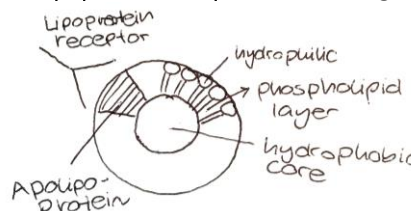 Lipoprotein
receptor
hydrophilic
phospholipid
layer
hydrophobic
core
Apolipo-
protein